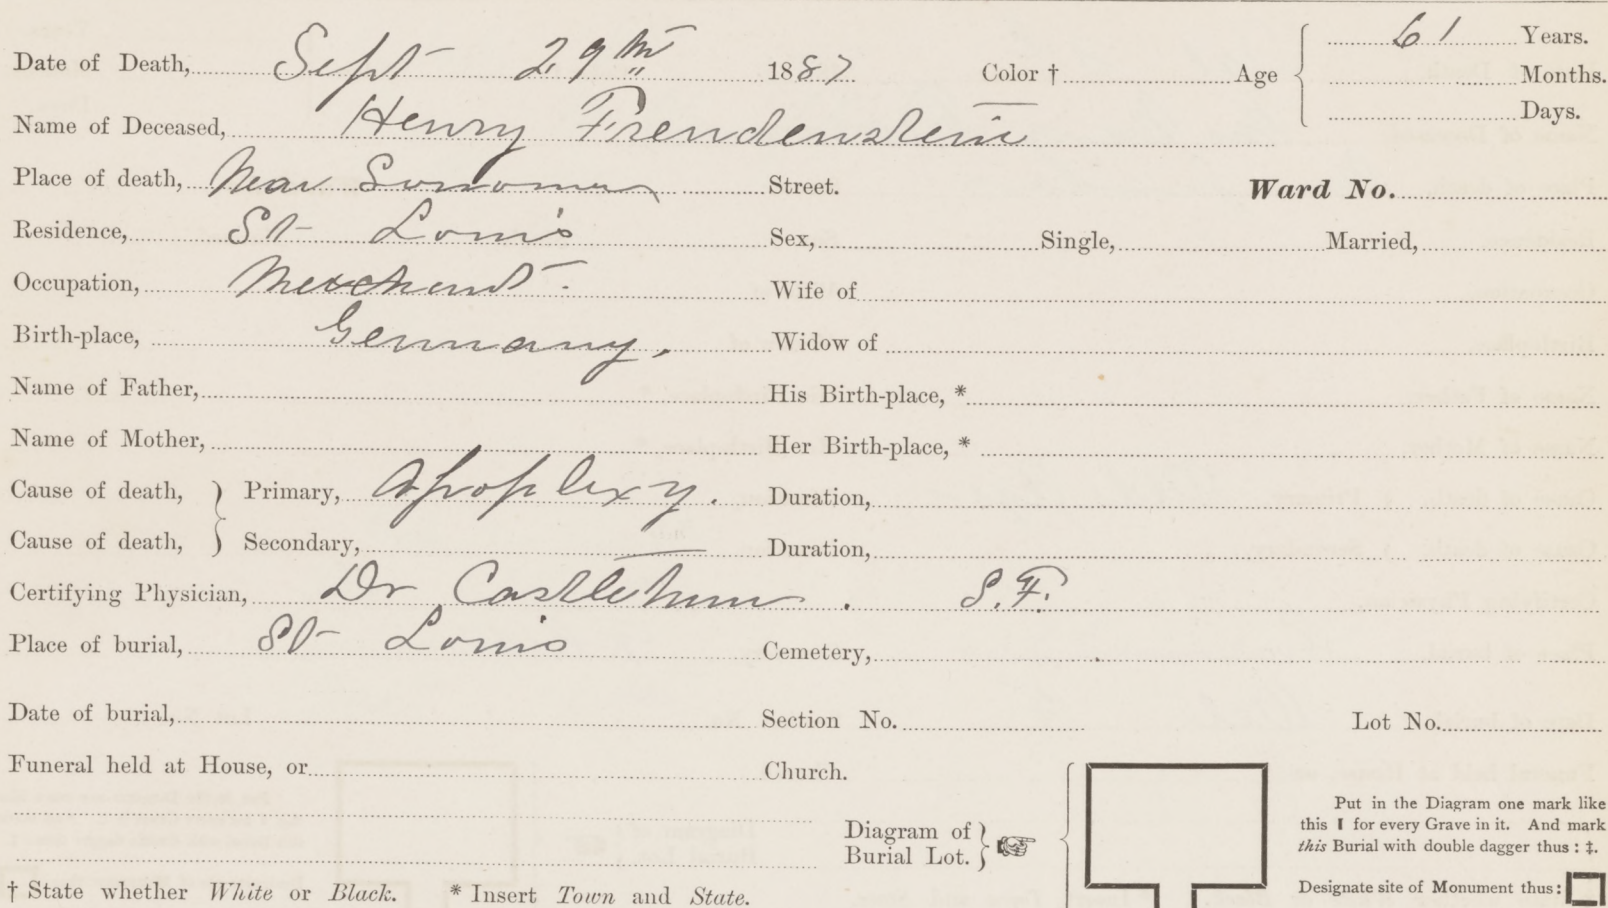 Date of Death, Sept 29th 1887 Color † Age 61 Years.
Months.
Days.
Name of Deceased, Henry Freudenstein
Place of death, Near Sonoma Street. Ward No.
Residence, St Louis Sex, Single, Married,
Occupation, Merchant. Wife of
Birth-place, Germany. Widow of
Name of Father, His Birth-place, *
Name of Mother, Her Birth-place, *
Cause of death, } Primary, Apoplexy. Duration,
Cause of death, } Secondary, Duration,
Certifying Physician, Dr S.F.
Place of burial, St Louis Cemetery,
Date of burial, Section No. Lot No.
Funeral held at House, or Church.
Diagram of
Burial Lot. }
Put in the Diagram one mark like
this I for every Grave in it. And mark
this Burial with double dagger thus : ‡.
Designate site of Monument thus :
† State whether White or Black. * Insert Town and State.